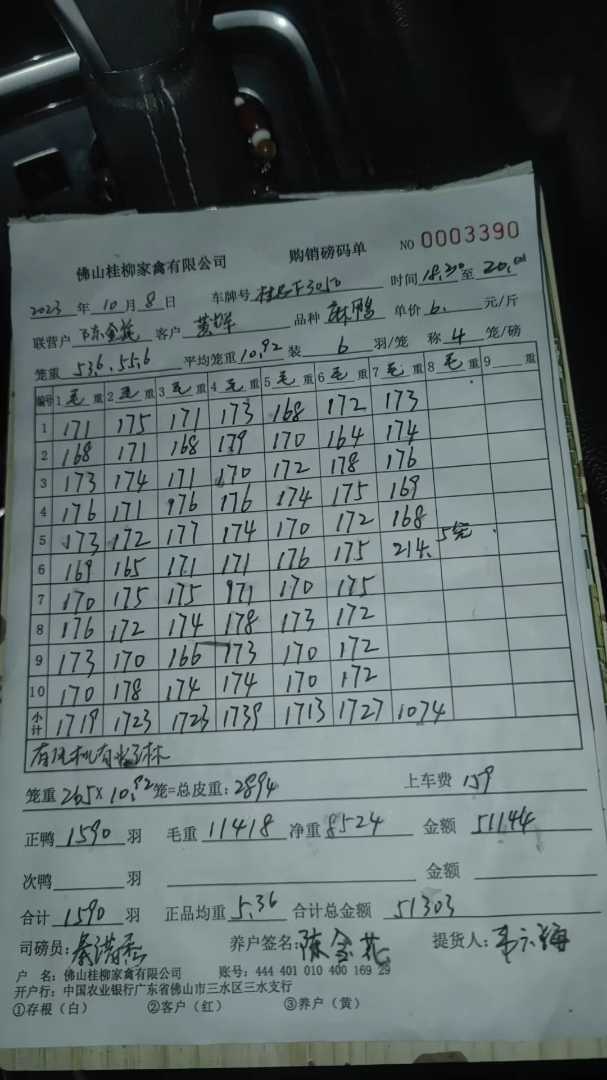 佛山桂柳家禽有限公司 购销磅码单 NO 0003390
2023 年 10 月 8 日 车牌号 时间 18:30 至 20:00
联营户 陈金花 客户 黄辉 品种 麻鸭 单价 6. 元/斤
笼重 53.6. 55.6 平均笼重 10.92 装 6 羽/笼 称 4 笼/磅
编号 1 毛 重 2 毛 重 3 毛 重 4 毛 重 5 毛 重 6 毛 重 7 毛 重 8 毛 重 9 重
1 171 175 171 173 168 172 173
2 168 171 168 179 170 164 174
3 173 174 171 170 172 178 176
4 176 171 176 176 174 175 169
5 173 172 177 174 170 172 168
6 169 165 171 171 176 175 214. 5笼
7 170 175 175 171 170 175
8 176 172 174 178 173 172
9 173 170 166 173 170 172
10 170 178 174 174 170 172
小计 1719 1723 1723 1739 1713 1727 1074
笼重 265 × 10.92 笼=总皮重: 2894 上车费 159
正鸭 1590 羽 毛重 11418 净重 8524 金额 51144
次鸭 羽 金额
合计 1590 羽 正品均重 5.36 合计总金额 51303
司磅员: 养户签名: 陈金花 提货人:
户 名: 佛山桂柳家禽有限公司 账号: 444 401 010 400 169 29
开户行: 中国农业银行广东省佛山市三水区三水支行
①存根(白) ②客户(红) ③养户(黄)